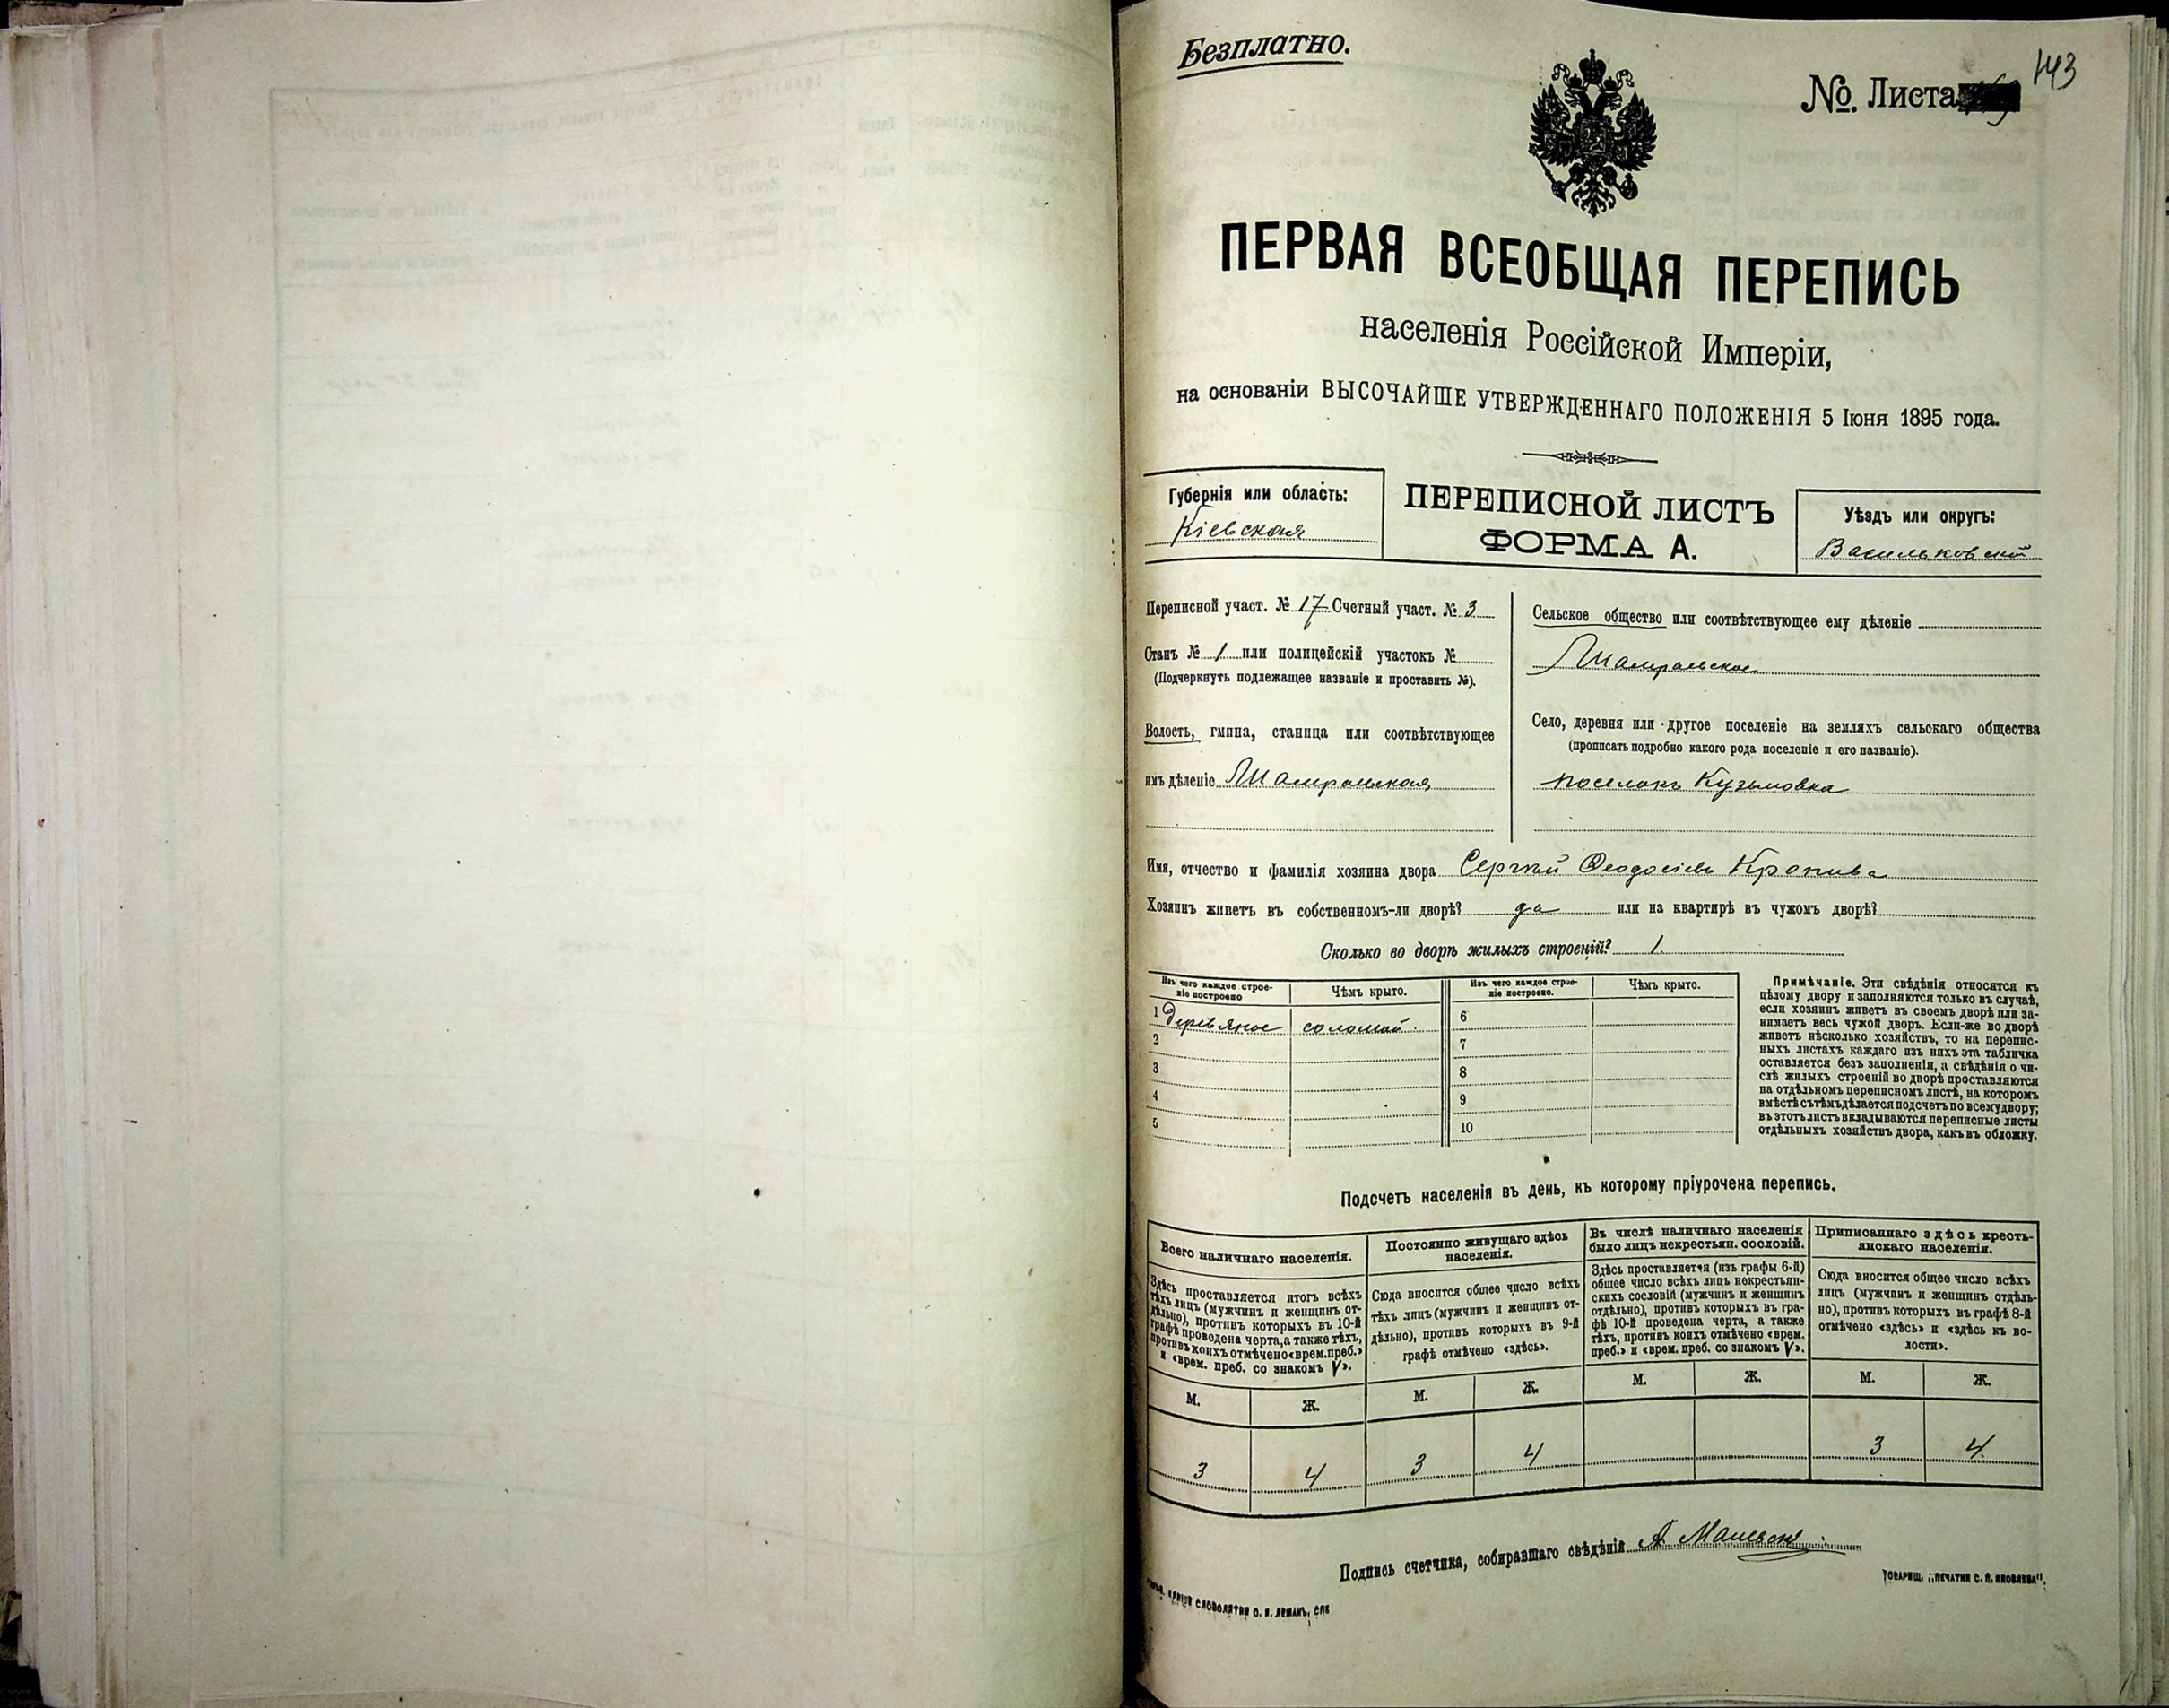 Безплатно.
143
№. Листа
ПЕРВАЯ ВСЕОБЩАЯ ПЕРЕПИСЬ
населенія Россійской Имперіи,
на основаніи ВЫСОЧАЙШЕ УТВЕРЖДЕННАГО ПОЛОЖЕНІЯ 5 Іюня 1895 года.
Губернія или область:
Кіевская
ПЕРЕПИСНОЙ ЛИСТЪ
ФОРМА А.
Уѣздъ или округъ:
Васильковскій
Переписной участ. № 17 Счетный участ. № 3
Станъ № 1 или полицейскій участокъ №
(Подчеркнуть подлежащее названіе и проставить №).
Волость, гмина, станица или соотвѣтствующее
имъ дѣленіе
Сельское общество или соотвѣтствующее ему дѣленіе
Село, деревня или другое поселеніе на земляхъ сельскаго общества
(прописать подробно какого рода поселеніе и его названіе).
поселокъ Кузьмовка
Имя, отчество и фамилія хозяина двора Сергѣй Ѳеодосіевъ Кропива
Хозяинъ живетъ въ собственномъ-ли дворѣ? да или на квартирѣ въ чужомъ дворѣ?
Сколько во дворѣ жилыхъ строеній? 1.
Изъ чего каждое строе-
ніе построено
Чѣмъ крыто.
Изъ чего каждое строе-
ніе построено.
Чѣмъ крыто.
1 Деревяное соломой. 6
2 7
3 8
4 9
5 10
Примѣчаніе. Эти свѣдѣнія относятся къ
цѣлому двору и заполняются только въ случаѣ,
если хозяинъ живетъ въ своемъ дворѣ или за-
нимаетъ весь чужой дворъ. Если-же во дворѣ
живетъ нѣсколько хозяйствъ, то на перепис-
ныхъ листахъ каждаго изъ нихъ эта табличка
оставляется безъ заполненія, а свѣдѣнія о чи-
слѣ жилыхъ строеній во дворѣ проставляются
на отдѣльномъ переписномъ листѣ, на которомъ
вмѣстѣ съ тѣмъ дѣлается подсчетъ по всему двору;
въ этотъ листъ вкладываются переписные листы
отдѣльныхъ хозяйствъ двора, какъ въ обложку.
Подсчетъ населенія въ день, къ которому пріурочена перепись.
Всего наличнаго населенія.
Здѣсь проставляется итогъ всѣхъ
тѣхъ лицъ (мужчинъ и женщинъ от-
дѣльно), противъ которыхъ въ 10-й
графѣ проведена черта, а также тѣхъ,
противъ коихъ отмѣчено «врем. преб.»
и «врем. преб. со знакомъ V».
Постоянно живущаго здѣсь
населенія.
Сюда вносится общее число всѣхъ
тѣхъ лицъ (мужчинъ и женщинъ от-
дѣльно), противъ которыхъ въ 9-й
графѣ отмѣчено «здѣсь».
Въ числѣ наличнаго населенія
было лицъ некрестьян. сословій.
Здѣсь проставляется (изъ графы 6-й)
общее число всѣхъ лицъ некрестьян-
скихъ сословій (мужчинъ и женщинъ
отдѣльно), противъ которыхъ въ гра-
фѣ 10-й проведена черта, а также
тѣхъ, противъ коихъ отмѣчено «врем.
преб.» и «врем. преб. со знакомъ V».
Приписаннаго здѣсь кресть-
янскаго населенія.
Сюда вносится общее число всѣхъ
лицъ (мужчинъ и женщинъ отдѣль-
но), противъ которыхъ въ графѣ 8-й
отмѣчено «здѣсь» и «здѣсь къ во-
лости».
М. Ж. М. Ж. М. Ж. М. Ж.
3 4 3 4 3 4
Подпись счетчика, собиравшаго свѣдѣнія А
СЛОВОЛИТНЯ О. И. ЛЕМАНЪ, СПБ
ТОВАРИЩ. „ПЕЧАТНЯ С. П. ЯКОВЛЕВА".